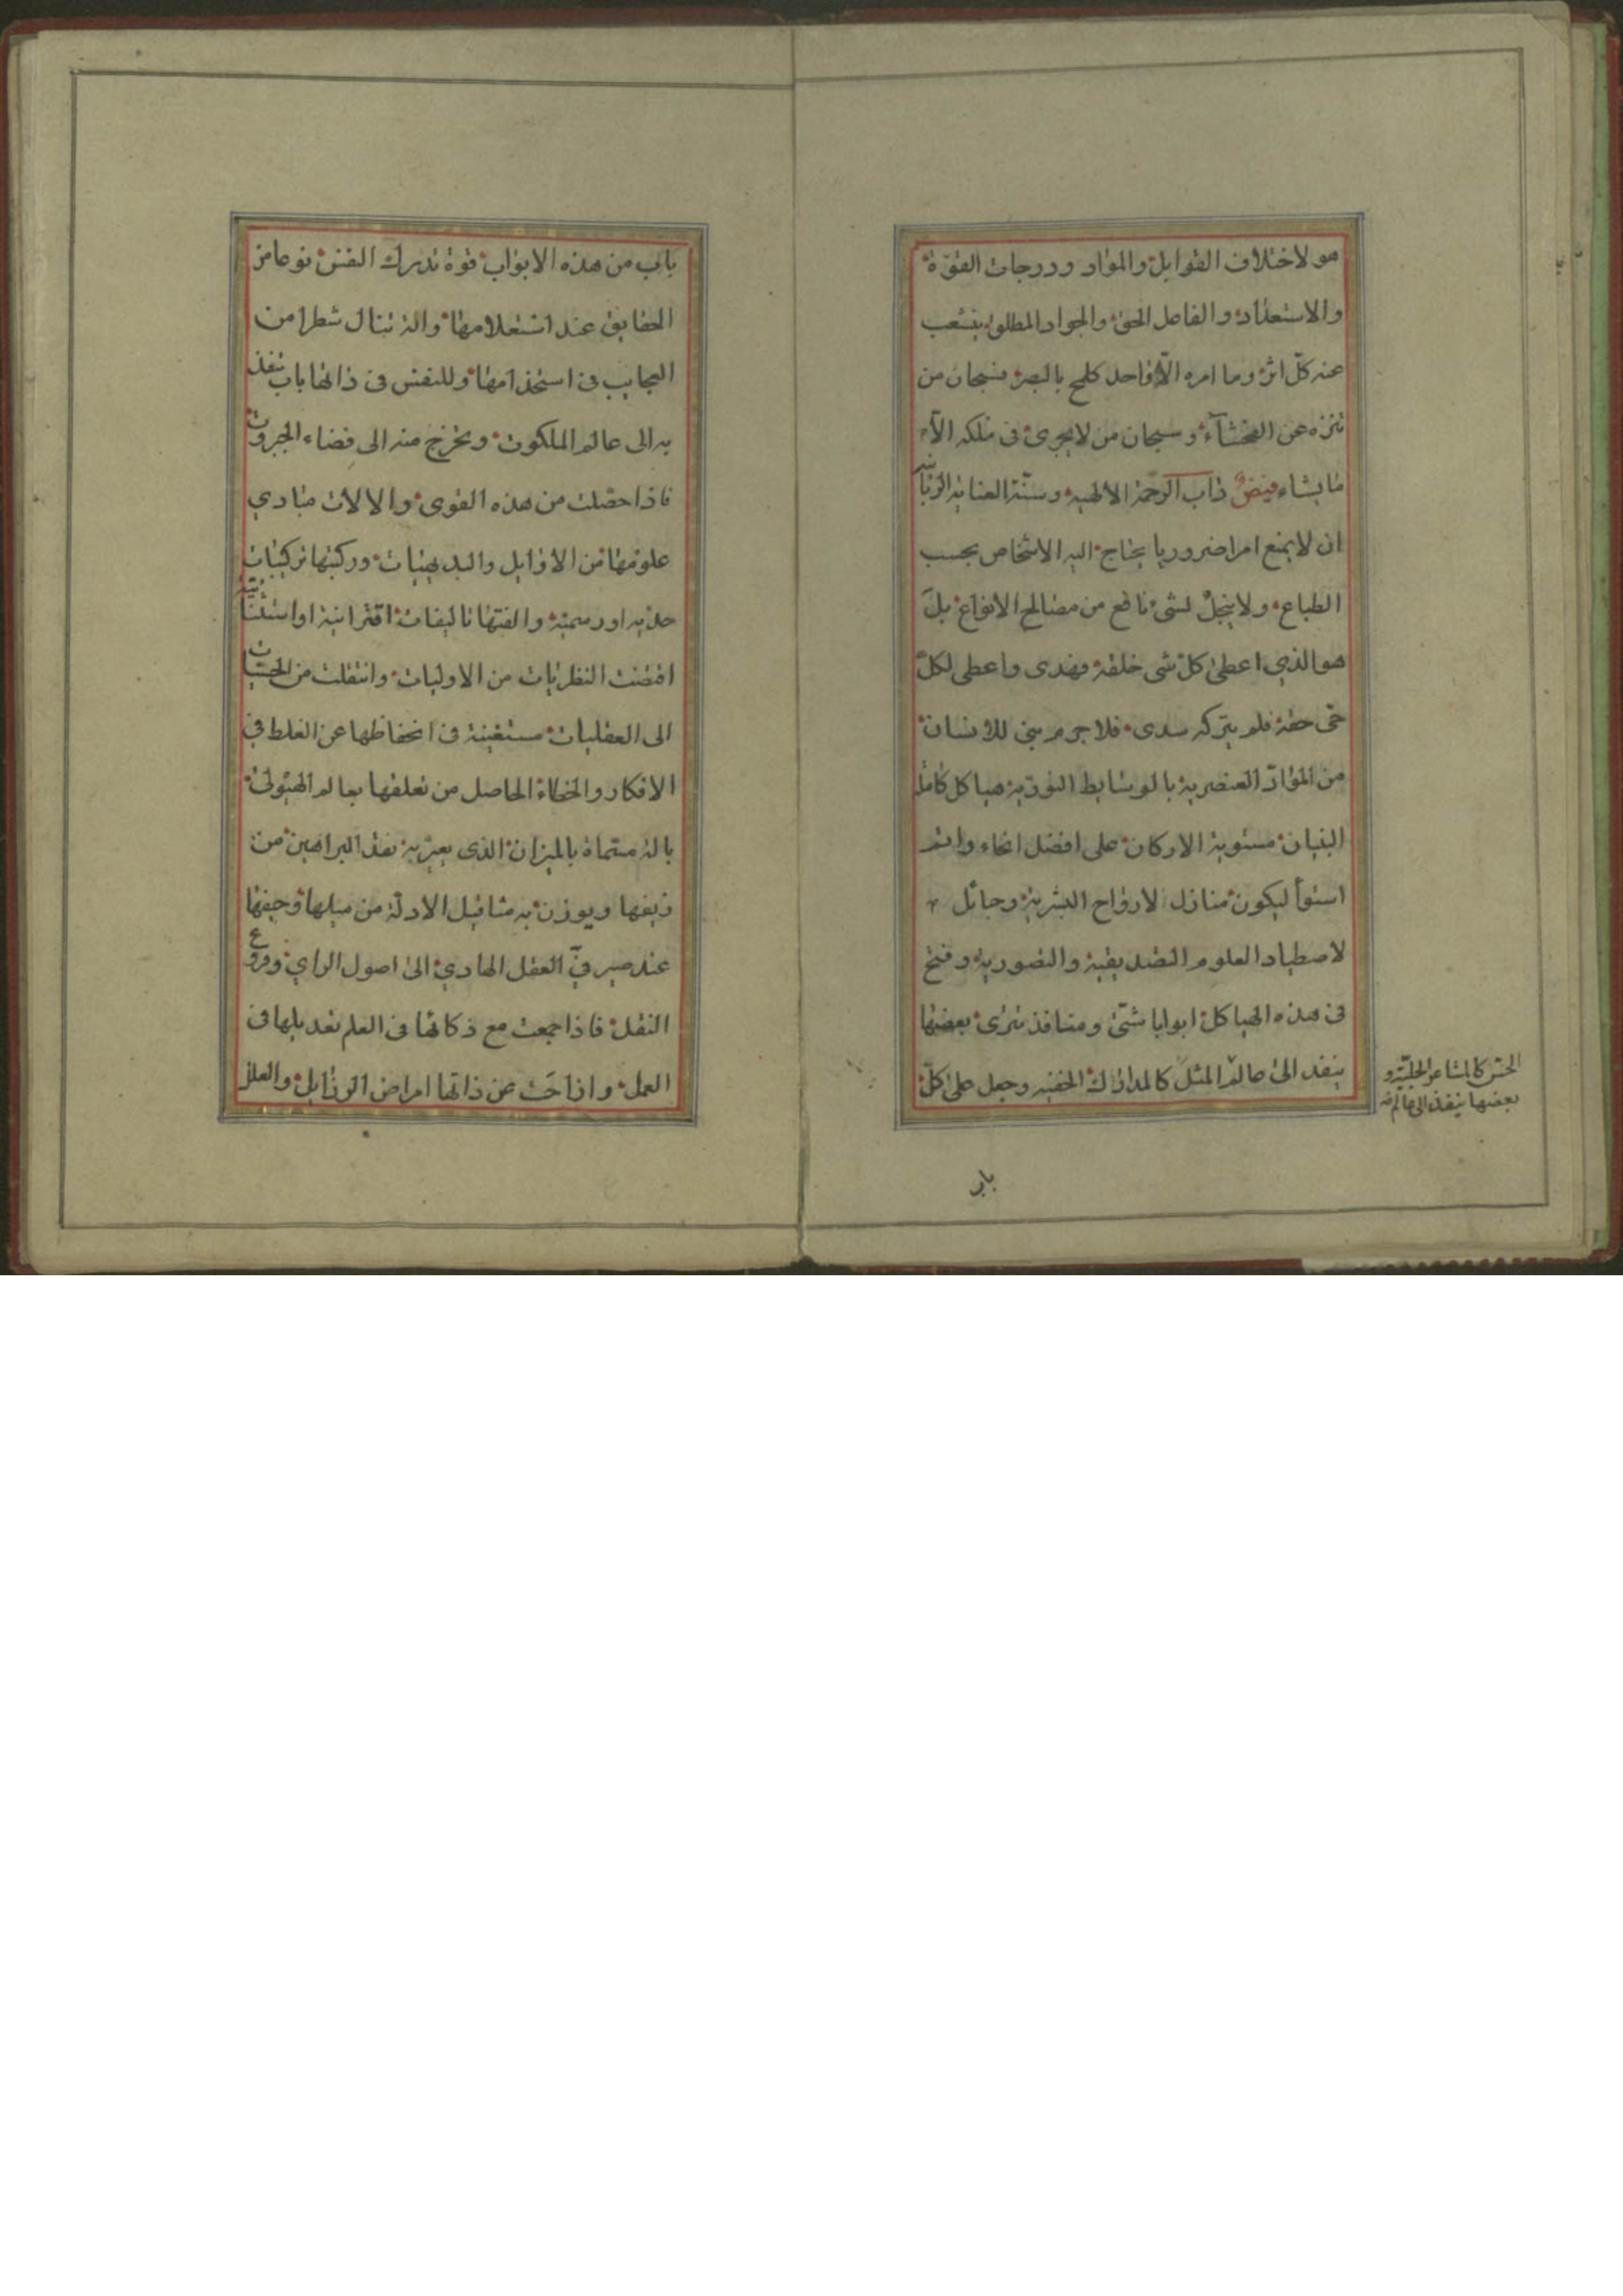 هو لاختلاف القوابل والمواد ودرجات القوّة
والاستعداد والفاعل الحق والجواد المطلق ينشعب
عنه كلّ اثر وما امره الّا واحد كلمح بالبصر فسبحان من
تنزه عن الفحشآء وسبحان من لا يجرى فى ملكه الّا
ما يشاء فيضٌ داب الرحمة الالهية وسنّة العناية الربانية
ان لا يمنع امرا ضروريا يحتاج اليه الاشخاص بحسب
الطباع ولا يبخل لشئ نافع من مصالح الانواع بل
هو الذي اعطى كل شى خلقه فهدى واعطى لكل
حق حقه فلم يتركه سدى فلا جرم بنى للانسان
من الموادّ العنصرية بالوسايط النوريّة هياكل كاملة
البنيان مستوية الاركان على افضل انحاء واتم
استوأ ليكون منازل لارواح البشرية وحبائل
لاصطياد العلوم التصديقية والتصورية وفتح
فى هذه الهياكل ابوابا شتّى ومنافذ تترى بعضها
ينفد الى عالم المثل كالمدارك الخفية وجعل على كلّ
الحسّ كالمشاعر الجليّة و
بعضها ينفذ الى عالم
باب
باب من هذه الابواب قوة تدرك النفس نوعا من
الحقايق عند استعلامها والة تنال شطرا من
العجايب فى استخدامها وللنفس فى ذاتها باب تنفذ
به الى عالم الملكوت وتخرج منه الى فضاء الجبروت
فاذا حصّلت من هذه القوى والالات مبادي
علومها من الاوايل والبديهيات وركبتها تركيبات
حدّيه او رسميّة والفتها تاليفات اقترانية او استثنائيّة
اقتضت النظريات من الاوليات وانتقلت من الحسّيات
الى العقليات مستعينة فى انحفاظها عن الغلط في
الافكار والخطاء الحاصل من تعلقها بعالم الهيولى
بالة مسمّاة بالميزان الذى يعيّر به نقد البراهين من
زيفها ويوزن به مثاقيل الادلّة من ميلها وحيفها
عند صيرفيّ العقل الهادي الى اصول الراي وفروع
النقل فاذا جمعت مع ذكائها فى العلم تعديلها فى
العمل وازاحت عن ذاتها امراض الرذايل والعلل